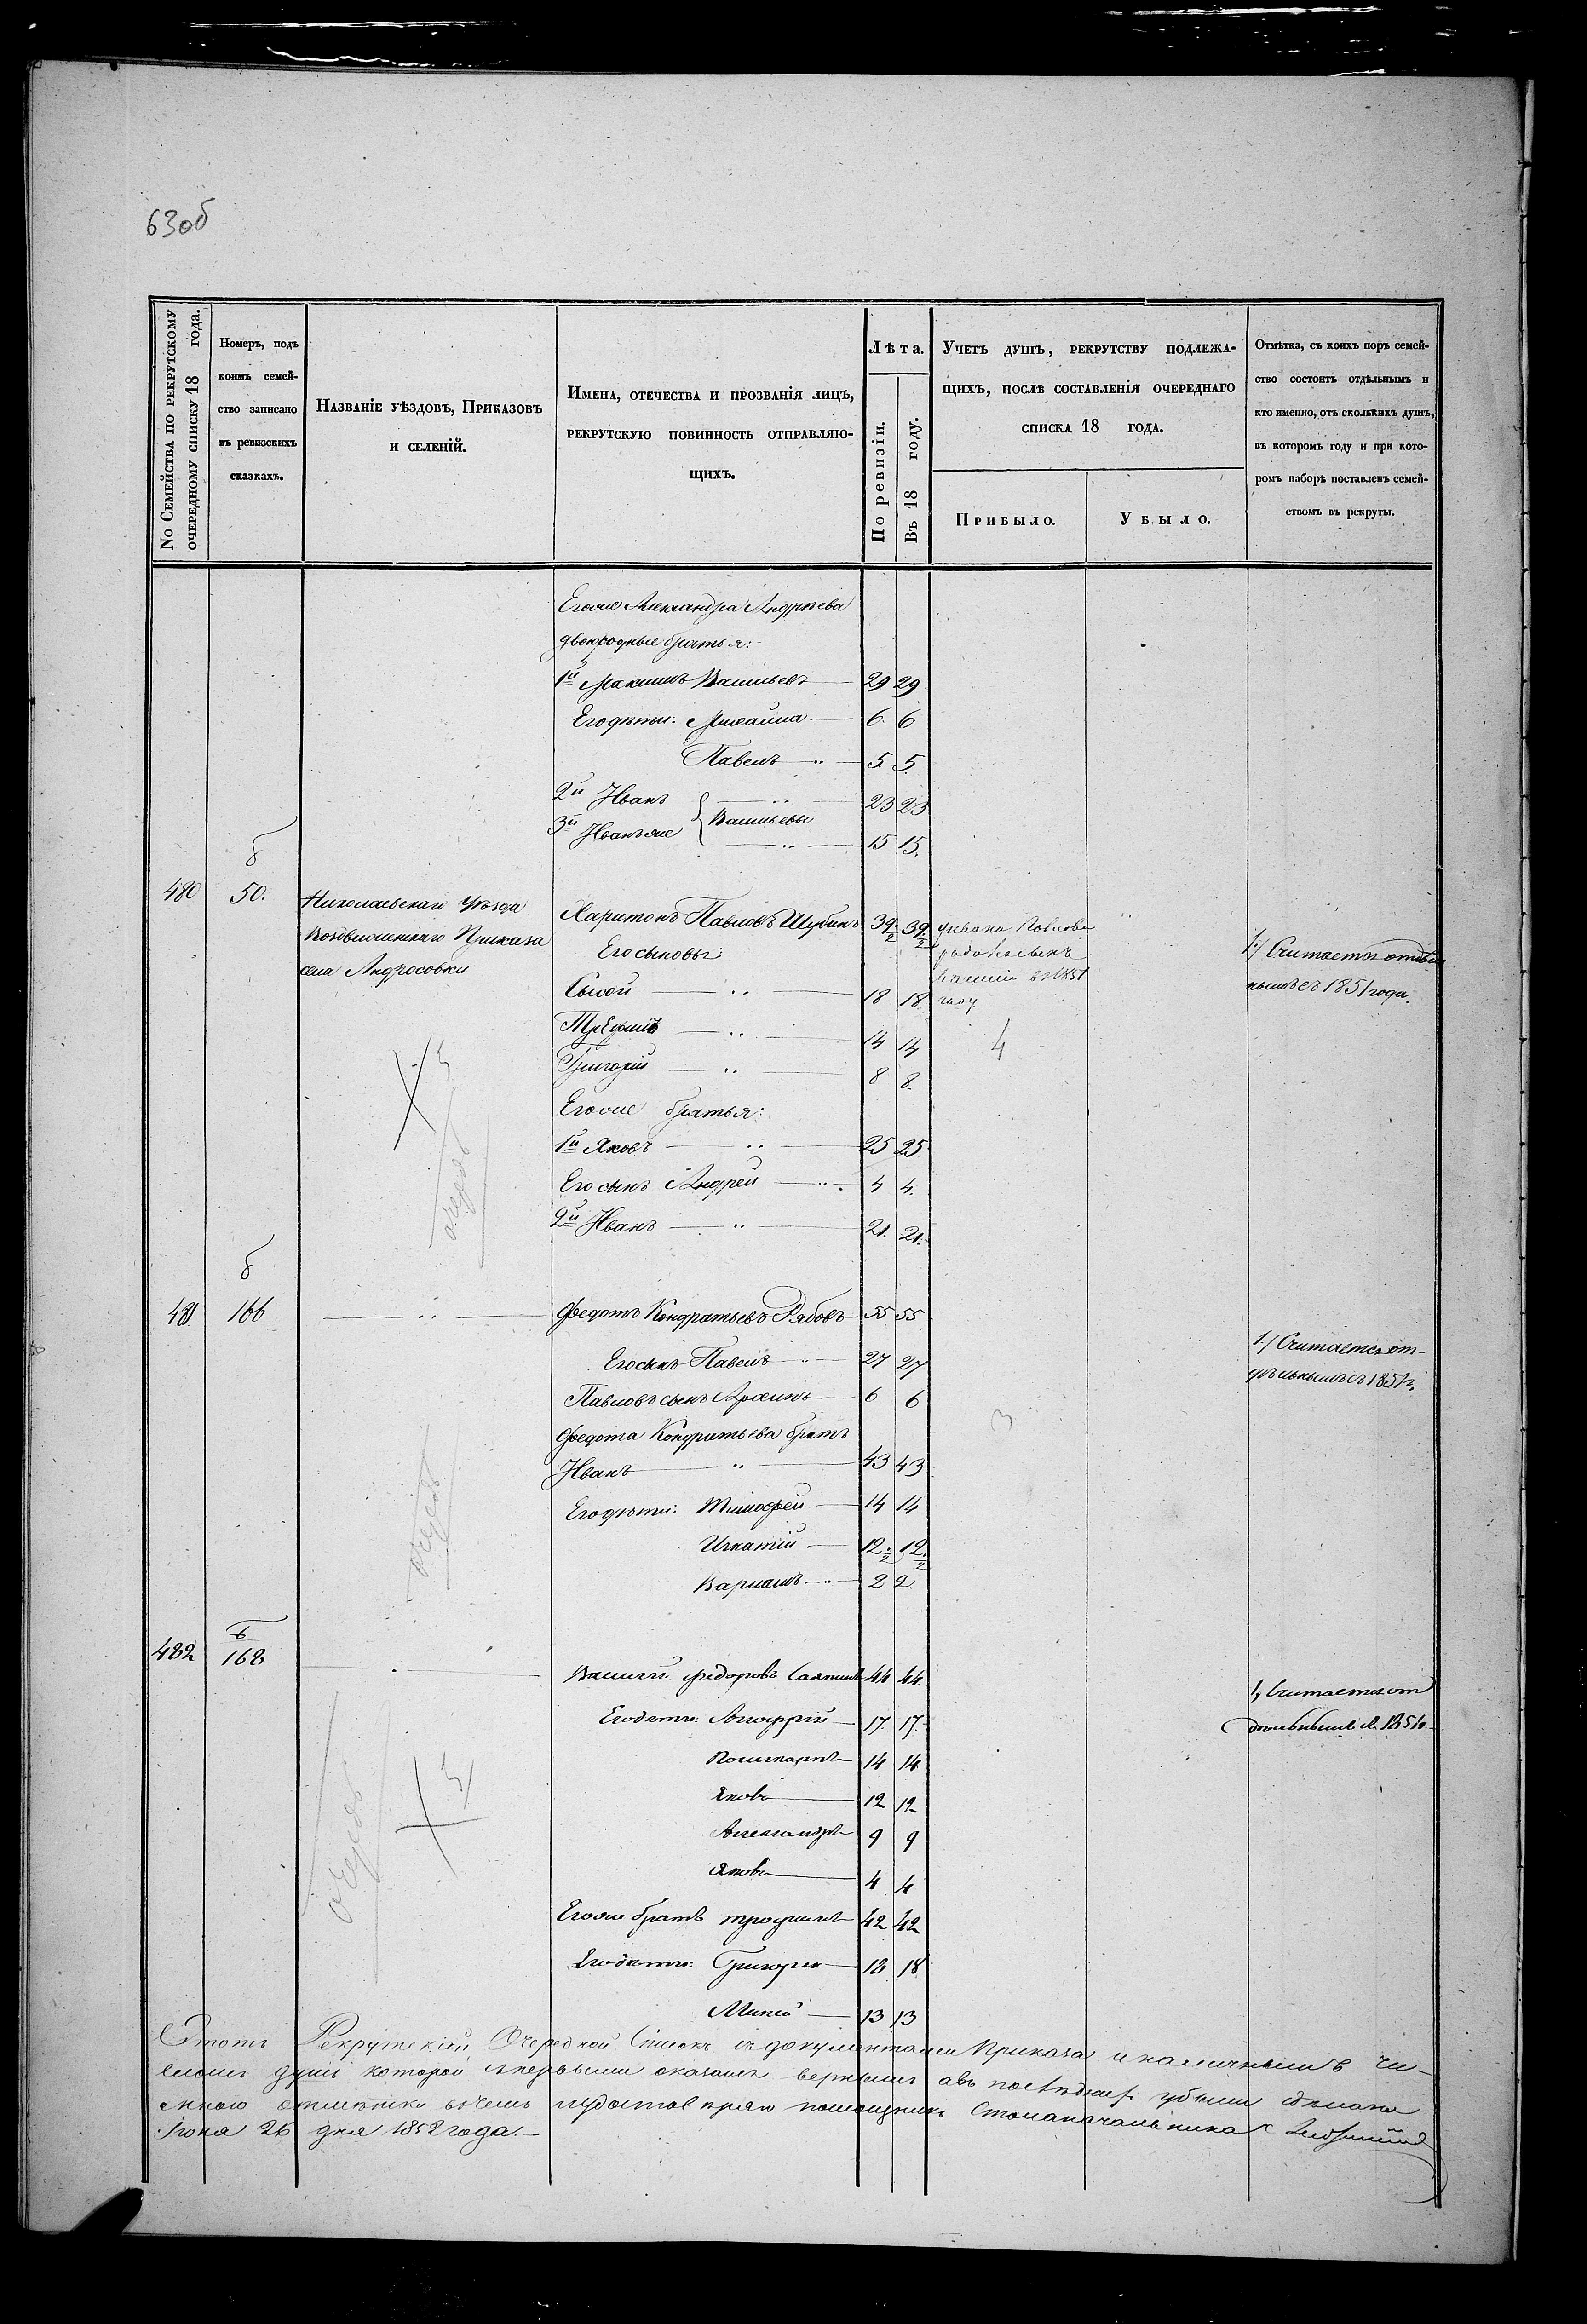 63об
No Семейства по рекрутскому
очередному списку 18 года.
Номеръ, подъ
коимъ семей-
ство записано
въ ревизскихъ
сказкахъ.
Названіе уѣздовъ, Приказовъ
и селеній.
Имена, отечества и прозванія лицъ,
рекрутскую повинность отправляю-
щихъ.
Лѣта.
По ревизіи.
Въ 18 году.
Учетъ душъ, рекрутству подлежа-
щихъ, послѣ составленія очереднаго
списка 18 года.
Прибыло.
Убыло.
Отмѣтка, съ коихъ поръ семей-
ство состоитъ отдѣльнымъ и
кто именно, отъ сколькихъ душъ,
въ которомъ году и при кото-
ромъ наборѣ поставленъ семей-
ствомъ въ рекруты.
Егоже Александра Андреева
двоюродные братья:
1й Максимъ Васильевъ 29 29
Его дѣти: Михаила 6 6
Павелъ 5 5
2й Иванъ 23 23
Васильевы
3й Иванъ же 15 15
480 50. Николаевскаго уѣзда Харитонъ Павловъ Шубинъ 39 1/2 39 1/2
Воздвиженскаго Приказа Его сыновья:
села Андросовки
1) Считается отдѣль
нымъ съ 1851 года.
Сысой 18 18
въ 1851
году
14 14
4
Григорій 8 8
Егоже братья:
1й Яковъ 25 25
Его сынъ Андрей 4 4
2й Иванъ 21 21
очередь
481 166 Федотъ Кондратьевъ Рябовъ 55 55
1) Считается от-
дѣльнымъ съ 1851г.
Его сынъ Павелъ 27 27
Павловъ сынъ 6 6
3
Федота Кондратьева братъ
Иванъ 43 43
Его дѣти: Тимофей 14 14
Игнатій 12 1/2 12 1/2
Варламъ 2 2
очередь
482 168 Василій Федоровъ 44 44
1) Считается от
дѣльнымъ съ 1851г.
Его дѣти: 17 17
Поликарпъ 14 14
Яковъ 12 12
Александръ 9 9
Яковъ 4 4
Егоже братъ Трофимъ 42 42
Его дѣти: Григорій 18 18
Миней 13 13
очередь
Етотъ Рекрутскій Очередной Списокъ съ документами Приказа и наличнымъ чи-
сломъ душъ которой съ первыми оказался вернымъ а въ последнемъ убыли
въ чемъ удостоверяю помощникъ Столоначальника
Июня 26 дня 1852 года.